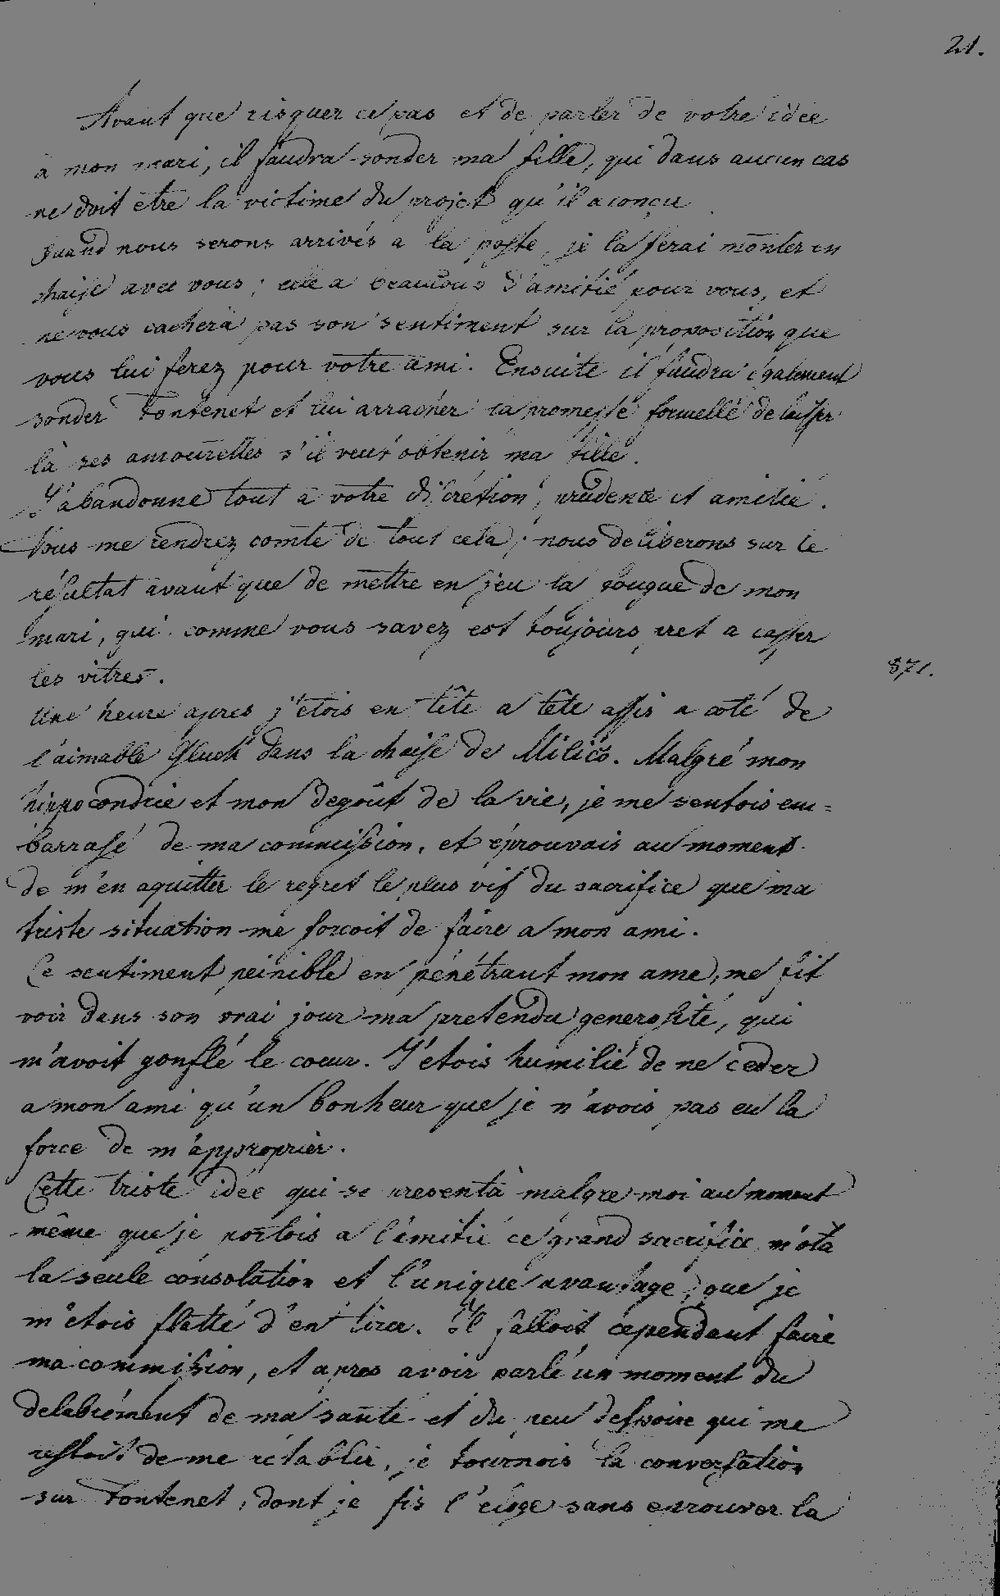 21.
Avant que risquer ce pas et de parler de votre idée
a mon mari, il faudra sonder ma fille, qui dans aucun cas
ne doit être la victime du projet qu'il a conçu
Quand nous serons arrivés a la poste, je la ferai monter en
chaise avec vous; elle a beaucoup d'amitié pour vous, et
ne vous cachera pas son sentiment sur la proposition que
vous lui ferez pour votre ami. Ensuite il faudra également
sonder Fontenet et lui arracher la promesse formelle de laisser
là ses amourettes s'il veut obtenir ma fille.
J'abandonne tout a votre discrétion, prudence et amitié.
Vous me rendrez comte de tout cela; nous deliberons sur le
résultat avant que de mettre en jeu la fougue de mon
mari, qui comme vous savez est toujours pret a casser
les vitres.
871.
Une heure apres j'etois en tête a tête assis a coté de
l'aimable Gluck dans la chaise de Milico. Malgré mon
hippocondrie et mon degoût de la vie, je me sentois em=
barrasé de ma commission, et éprouvais au moment
de m'en aquitter le regret le plus vif du sacrifice que ma
triste situation me forcoit de faire a mon ami.
Ce sentiment peinible en pénétrant mon ame, me fit
voir dans son vrai jour ma pretendu generosité, qui
m'avoit gonflé le cœur. J'etois humilié de ne ceder
a mon ami qu'un bonheur que je n'avois pas eu la
force de m'approprier.
Cette triste idée qui se presenta malgre moi au moment
même que je portois a l'amitié ce grand sacrifice m'ota
la seule consolation et l'unique avantage, que je
m'etois flatté d'en tirer. Il falloit cependant faire
ma commission, et apres avoir parlé un moment du
delabrement de ma santé et du peu d'espoire qui me
restoit de me rétablir, je tournois la conversation
sur Fontenet, dont je fis l'eloge sans eprouver la